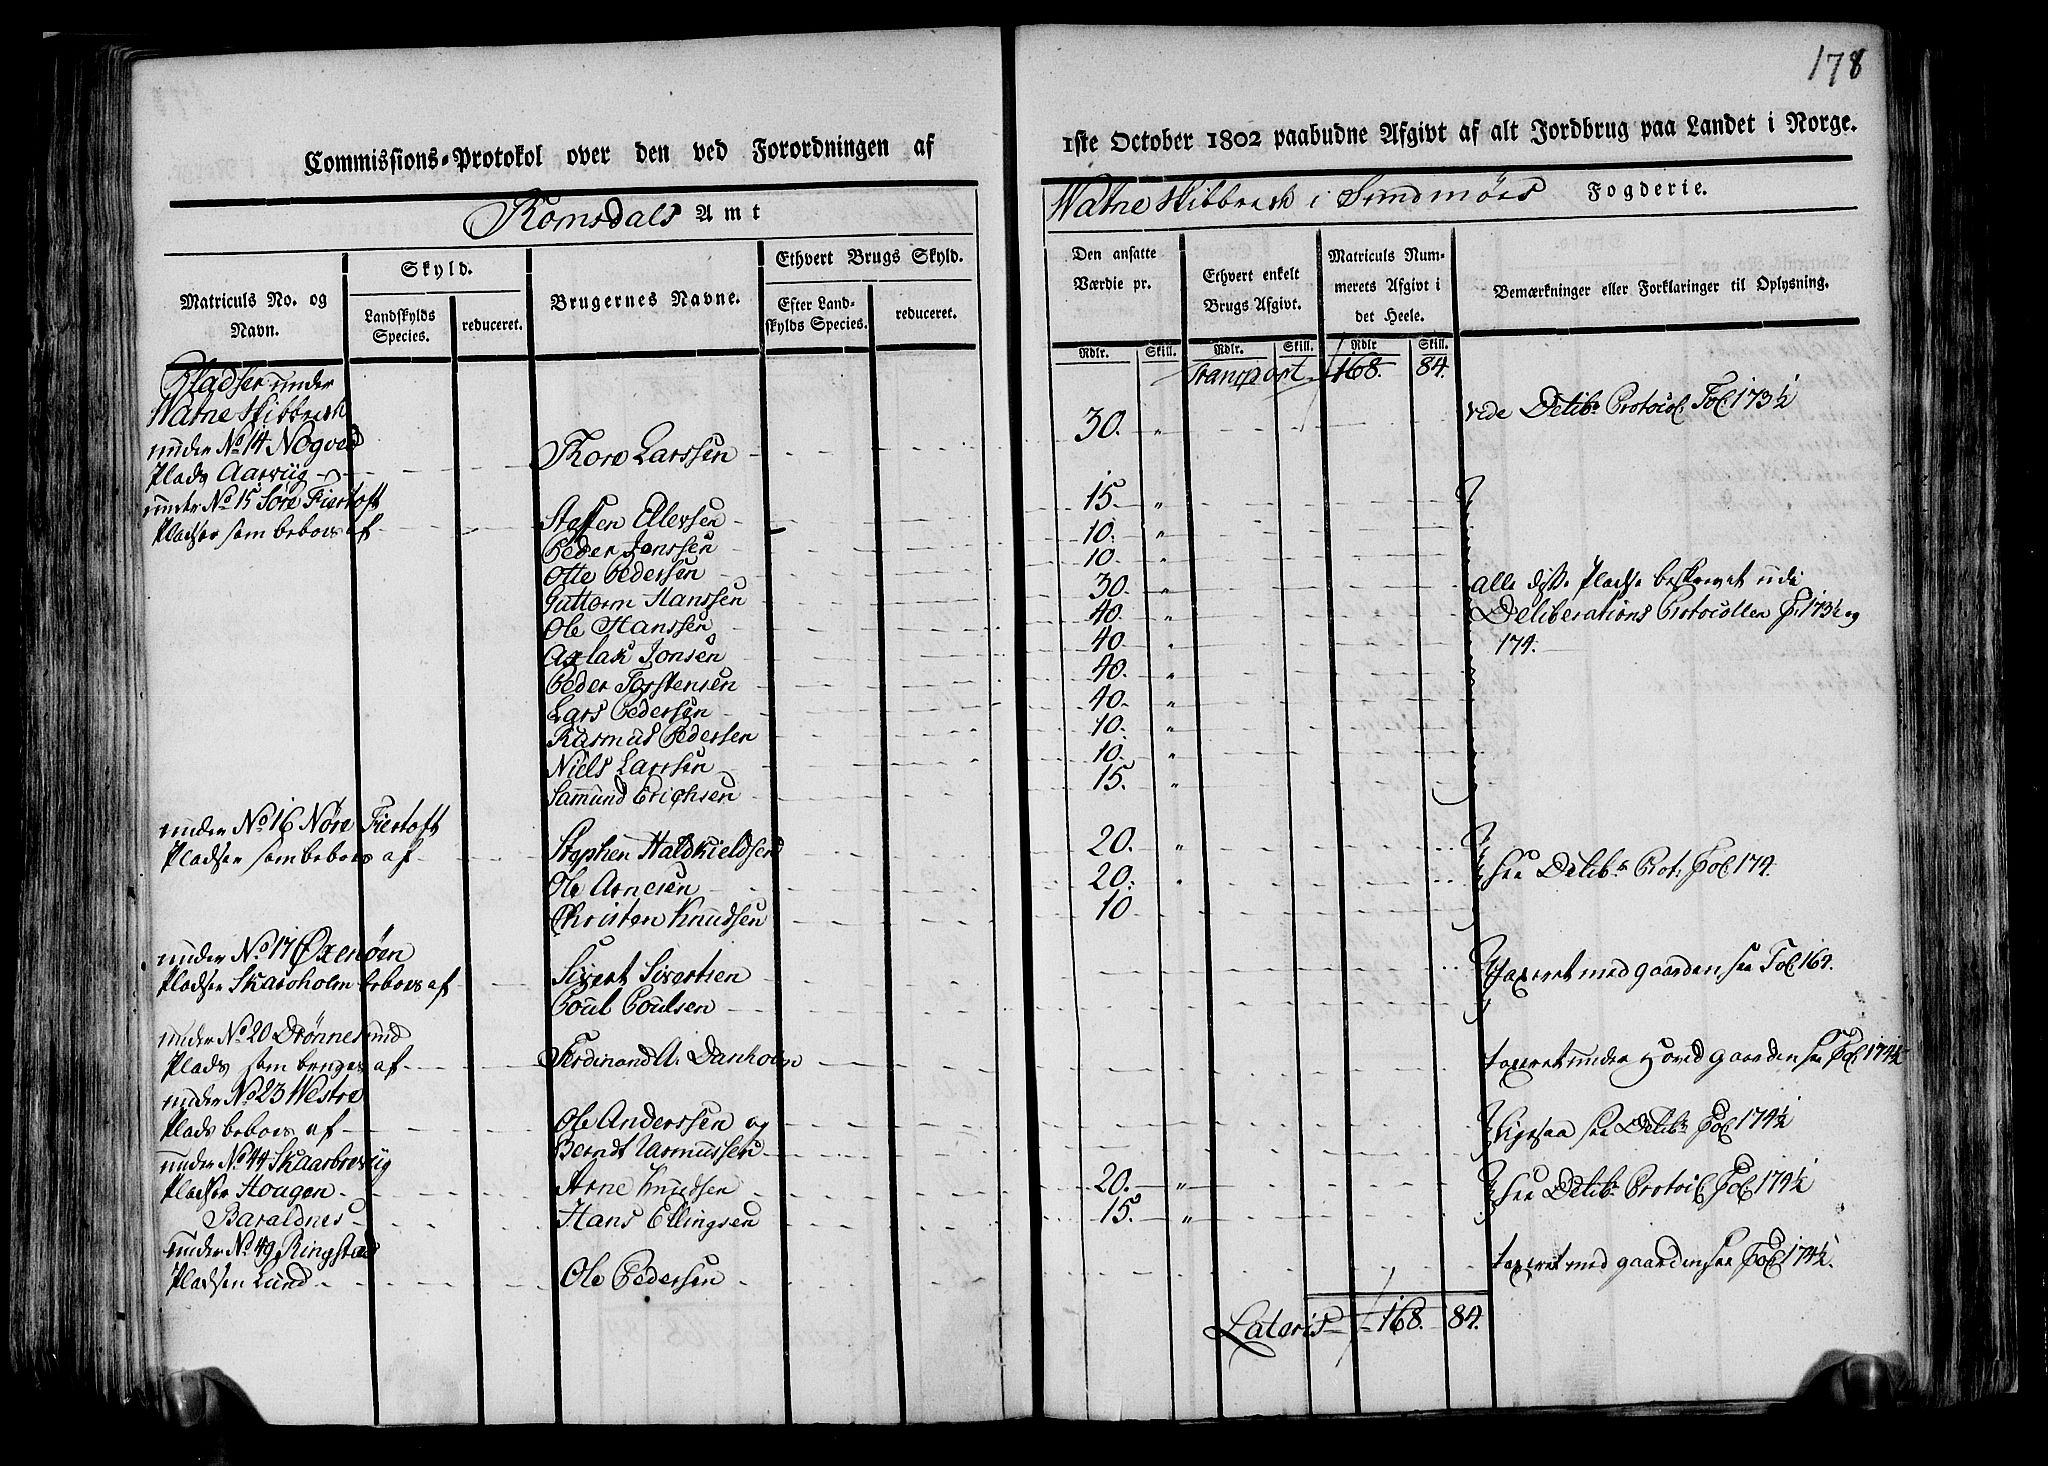 178
Commissions-Protokol over den ved Forordningen af
Romsdals Amt
Matriculs No. og Navn.
Skyld.
Landskylds Species.
reduceret.
Brugernes Navne.
Ethvert Brugs Skyld.
Efter Landskylds Species.
reduceret.
Pladser under
Watne Skibbrede
under No. 14 Nogved
Plads Aarviig
Tore Larssen
under No. 15 Søre Fiertoft
Pladser som beboes af
Staffen Ellevsen
Peder Jonssen
Otte Pedersen
Guttorm Hanssen
Ole Hanssen
Aslak Jonsen
Peder Torstensen
Lars Pedersen
Rasmus Pedersen
Niels Larssen
Samund Erichsen
under No. 16 Nøre Fiertoft
Pladser som beboes af
Stephen Haldkieldsen
Ole Arnesen
Christen Knudsen
under No. 17 Øxenøen
Pladsen Skaroholm beboes af
Sivert Sivertsen
Poul Poulsen
under No. 20 Drønnesund
Plads som bruges af
Ferdinand A. Danholm
under No. 23 Westre
Plads beboes af
Ole Anderssen og
Berndt Rasmussen
under No. 44 Skaarbrevig
Pladser Hougen
Arne Knudsen
Baraldnes
Hans Ellingsen
under No. 49 Ringstad
Pladsen Lund
Ole Pedersen
1ste October 1802 paabudne Afgivt af alt Jordbrug paa Landet i Norge.
Watne Skibbrede i Sundmørs Fogderie.
Den ansatte Værdie pr.
Ethvert enkelt Brugs Afgivt.
Matriculs Nummerets Afgivt i det Heele.
Bemærkninger eller Forklaringer til Oplysning.
Rdlr. Skill. Rdlr. Skill. Rdlr Skill.
Transport 168. 84.
30. " vide Delibr. Protocol. Fol 173½
15. "
10. "
10. "
30. "
40. "
40. "
40. "
40. "
10. "
10. "
15. "
alle disse Pladse beskrevet udi
Deliberations Protocollen F. 173½ og
174.
20. "
20. "
10
see Delibr. Prot. Fol 174.
Taxeret med gaarden see Fol. 164.
taxeret under Hovedgaarden see Fol 174½
Ligesaa see Delibr. Fol 174½
20. "
15. "
see Delibr. Protocol. Fol. 174½
taxeret med gaarden see Fol. 174½.
Lateris 168. 84.